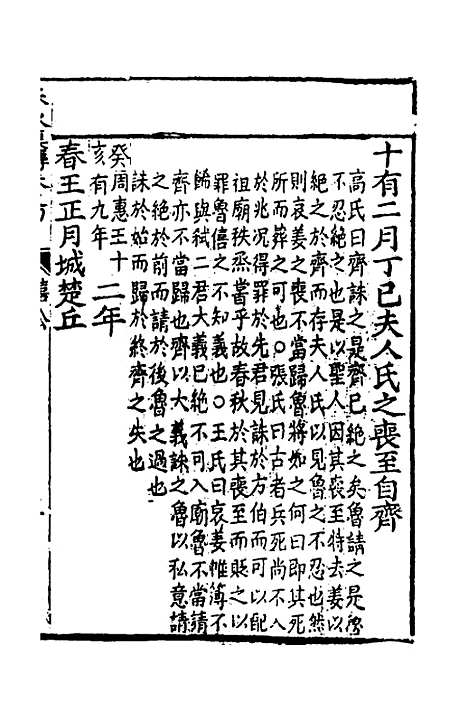 十有二月丁巳夫人氏之喪至自齊
高氏曰齊誅之是齊已絶之矣魯請之是魯
不忍絶之也是以聖人因其喪至特去姜以
絶之於齊而存夫人氏以見魯之不忍也然
則哀姜之喪不當歸魯將如之何曰即其死
所而葬之可也○張氏曰古者兵死尚不入
於兆况得罪於先君見誅於方伯而可以配
祖廟秩烝嘗乎故春秋於其喪至而貶之以
罪魯僖之不知義也○王氏曰哀姜帷簿不
飾與弑二君大義已絶不可入廟魯不當請
齊亦不當歸也齊以大義誅之魯以私意請
之絶於前而請於後魯之過也
誅於始而歸於終齊之失也
癸周惠王十
亥有九年
二年
春王正月城楚丘
僖公